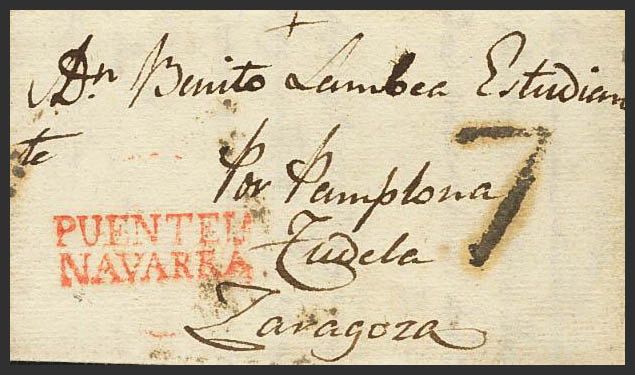 A Dn Benito Lambea Estudian
te
Por Pamplona
7
PUENTELA
NAVARRA
Tudela
Zaragoza